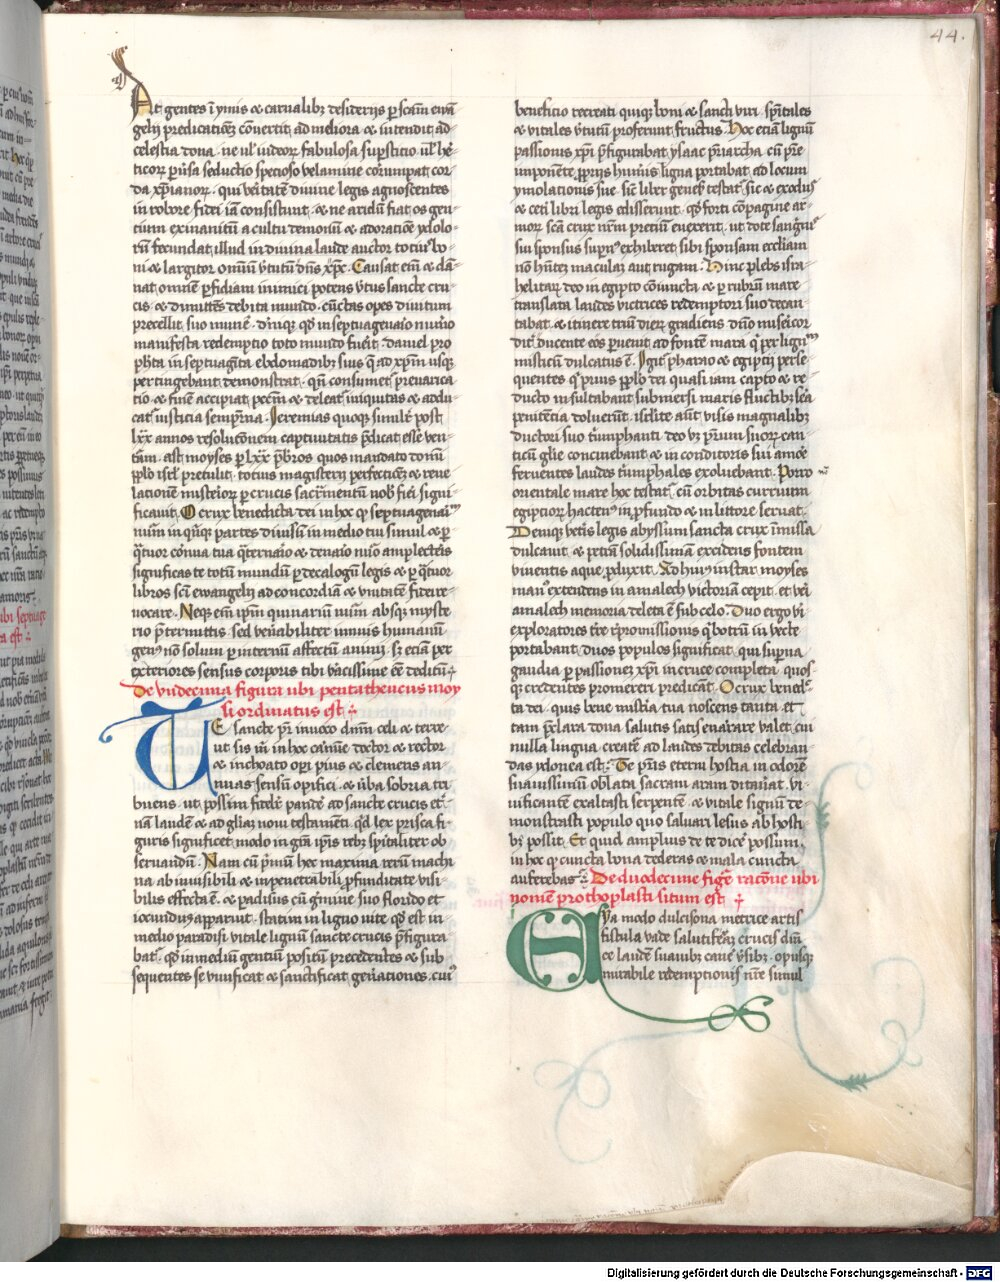 44.
At gentes ī ymis & carnalibꝫ desiderijs p̱ scām euā
gelij predicationē cōuertit, ad meliora & intendit ad
celestia dona, ne ul' iudeoꝝ fabulosa sup̱sticio ul' he
ticoꝝ p̱uisa seductio specioso velamine corūmpat cor
da xp̄ianoꝝ, qui ueritatē diuine legis agnoscentes
in robore fidei iā consistunt, & ne aridū fiat os gen
tium exinanitū a cultu demonū & adoratiōe ydolo
rū fecundat, illud in diuina laude auctor totius bo
ni & largitor omniū v̄tutū dn̄s xp̄c. Causat em̄ & dā
nat omnē p̱fidiam inimici potens v̄tus sancte cru
cis & dimittēs debita mundo. cūctas opes diuitum
precellit, suo munē. Deniqꝫ qd̄ in septuagenaīo nūio
manifesta redemptio toto mundo fuēit, daniel pro
ph̄ta in septuagīta ebdomadibꝫ suis q̄ ad xp̄m usqꝫ
pertingebant, demonstrat, qn̄ consumet, p̄uarica
tio & finē accipiat, pct̄m & deleat, iniquitas & addu
cat iusticia semp̱na. Jeremias quoqꝫ simil'r post
lxx annos resolucōnem captiuitatis p̄dicat esse ven
tam. ast moyses p̱ lxx p̄bros quos mandato domī
pp̄lo isrl' pretulit, totius magisterij perfectiōē & reue
lationē misterioꝝ p̱ crucis sacr̄mentū nob̄ fieri signi
ficauit. O crux benedicta dei in hoc qꝫ septuagenaīū
num̄ in q̄nqꝫ partes diuisū in medio tui simul & p̱
q̄tuor cornua tua q̄ternaīo & denaīo nūio amplectēs
significas te totū mundū p̱ decalogū legis & p̱ q̄tuor
libros sc̄i ewangelij ad concordiā & vnitatē fidei re
uocare. Neqꝫ em̄ ip̄m quinariū num̄ absqꝫ myste
rio p̄termittis. sed veīabiliter innuis humanū
genꝰ nō solum p̱ internū affectū animi, sꝫ eciā per
exteriores sensus corporis tibi veracissime eē deditū.
De vndecima figura ubi pentatheucus moy
si ordinatus est.
TE sancte pr̄ inuoco dn̄m celi & terre
ut sis m̄ in hoc carmīe doctor & rector
& inchoato op̱i pius & clemens an
nuas sensū opifici, & ūba sobria tri
buens, ut possim fidel'r pandē ad sancte crucis et̄
nā laudē & ad glīaꝫ noui testamenti, qd̄ lex prisca fi
guris significet, modo in grā ip̄is rebꝫ sp̄italiter ob
seruandū. Nam cū p̄mū hec maxima rerū machi
na ab inuisibili & inpenetrabili p̱funditate visi
bilis effecta ē. & padisus cū ḡmine suo florido et
iocundiꝰ apparuit. statim in ligno uite qd̄ est in
medio paradisi vitale lignū sancte crucis p̄figura
bat, qd̄ in mediū gentiū positū precedentes & sub
sequentes se viuificat & sanctificat, geīationes. cuiꝰ
beneficio recreati quiqꝫ boni & sancti viri sp̄itales
& vitales v̄tutū proferunt, fructus. Hoc etiā lignū
passionis xp̄i p̄figurabat, ysaac p̄riarcha cū p̄re
imponēte ppriis humīs ligna portabat, ad locum
ymolationis sue, sic̄ liber genes̄ testat̄, sic & exodꝰ
& ceti libri legis edisserunt. qd̄ forti cōpagine ar
mor scā crux nr̄m preciū euexerit, ut dote sanguīs
sui sponsus supn̄ꝰ exhiberet, sibi sponsam eccliam
nō hn̄tez maculaꝫ aut, rugam. Hinc plebs isra
helitaꝝ deo in egipto cōiuncta & p̱ rubrū mare
translata laudes victrices redemptori suo decan
tabat, & itinere triū dieꝝ gradiens dn̄o misēicor
dit̄ ducente eos p̱uenit, ad fontē mara q̄ per lignū
misticū dulcatus ē. Igit̄ pharao & egiptij perse
quentes q̄ prius pp̄lo dei quasi iam capto & re
ducto insultabant, submersi maris fluctibꝫ serā
penitētiā doluerūt. isr̄lite aūt, visis magnalibꝫ
ductori suo triumphanti deo vꝫ p̄mum suoꝝ can
ticū gl'ie concinebant, & in conditoris sui amōe
feruentes laudes triumphales exoluebant. Porro
orientale mare hoc testat̄, cū orbitas curruum
egiptioꝝ hactenꝰ in p̱fundo & in littore seruat.
Deniqꝫ vetīs legis abyssum sancta crux īmissa
dulcauit, & petrā solidissimā excidens fontem
viuentis aque pduxit. Ad huiꝰ instar moyses
manꝰ extendens in amalech victoriā cepit, et vēi
amalech memoria deleta ē sub celo. Duo ergo vi
exploratores tēre repromissionis q̄ botrū in vecte
portabant, duos populos significat, qui sup̱na
gaudia p̱ passionez xp̄i in cruce completa, quos
qꝫ credentes promereri predicāt. O crux benedi
cta dei, quis bene mīstia tua noscens tanta et
tam p̄clara dona salutis satis enarrare valet, cū
nulla lingua creatē ad laudes debitas celebran
das ydonea est. Te p̄nis eterni hostia in odorē
suauissimū oblata sacram aram ditauīat. vi
uificantē exaltasti serpentē, & vitale signū de
monstrasti populo quo saluari lesus ab hosti
bꝰ possit. Et quid amplius de te dicē possum,
in hoc qꝫ cuncta bona dederas & mala cuncta
auferebas. De duodecime figē racōne ubi
nomē prothoplasti situm est.
EYa modo dulcisona metrice artis
fistula vade salutiferā crucis diu
ce laudē suauibꝫ canē v̄sibꝫ. opusqꝫ
mirabile redemptionis nr̄e simul
Digitalisierung gefördert durch die Deutsche Forschungsgemeinschaft - DFG